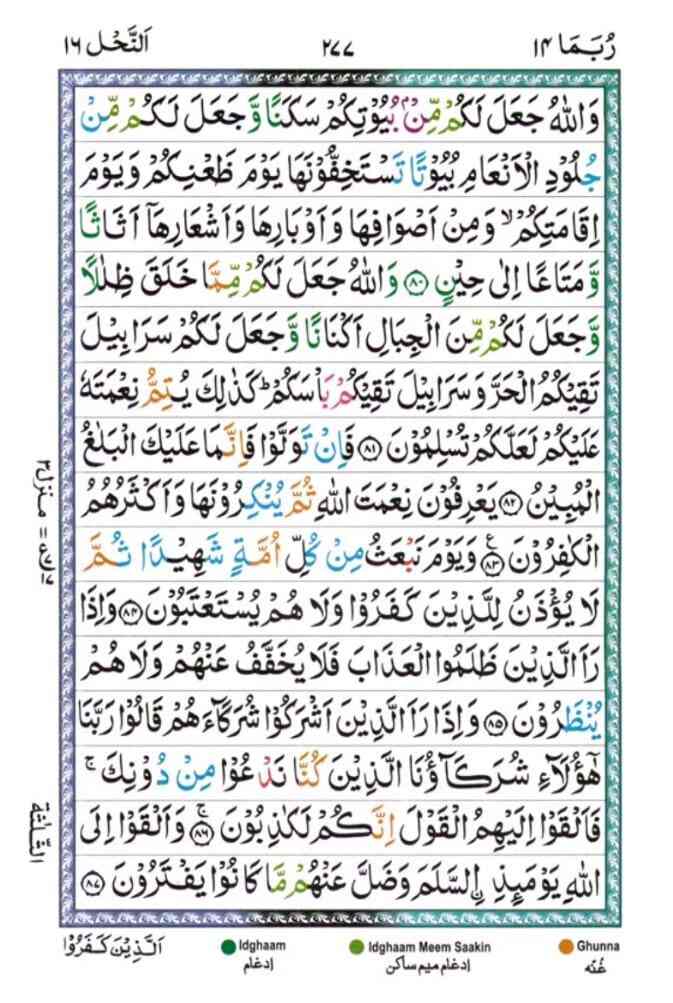 رُبَمَا ١٤
٢٧٧
اَلنَّحْل ١٦
وَاللّٰهُ جَعَلَ لَكُمْ مِّنْۢ بُيُوْتِكُمْ سَكَنًا وَّجَعَلَ لَكُمْ مِّنْ
جُلُوْدِ الْاَنْعَامِ بُيُوْتًا تَسْتَخِفُّوْنَهَا يَوْمَ ظَعْنِكُمْ وَيَوْمَ
اِقَامَتِكُمْ ۙ وَمِنْ اَصْوَافِهَا وَاَوْبَارِهَا وَاَشْعَارِهَآ اَثَاثًا
وَّمَتَاعًا اِلٰى حِيْنٍ ﴿٨٠﴾ وَاللّٰهُ جَعَلَ لَكُمْ مِّمَّا خَلَقَ ظِلٰلًا
وَّجَعَلَ لَكُمْ مِّنَ الْجِبَالِ اَكْنَانًا وَّجَعَلَ لَكُمْ سَرَابِيْلَ
تَقِيْكُمُ الْحَرَّ وَسَرَابِيْلَ تَقِيْكُمْ بَاْسَكُمْ ؕ كَذٰلِكَ يُتِمُّ نِعْمَتَهٗ
عَلَيْكُمْ لَعَلَّكُمْ تُسْلِمُوْنَ ﴿٨١﴾ فَاِنْ تَوَلَّوْا فَاِنَّمَا عَلَيْكَ الْبَلٰغُ
الْمُبِيْنُ ﴿٨٢﴾ يَعْرِفُوْنَ نِعْمَتَ اللّٰهِ ثُمَّ يُنْكِرُوْنَهَا وَاَكْثَرُهُمُ
الْكٰفِرُوْنَ ﴿٨٣﴾ ع وَيَوْمَ نَبْعَثُ مِنْ كُلِّ اُمَّةٍ شَهِيْدًا ثُمَّ
لَا يُؤْذَنُ لِلَّذِيْنَ كَفَرُوْا وَلَا هُمْ يُسْتَعْتَبُوْنَ ﴿٨٤﴾ وَاِذَا
رَاَ الَّذِيْنَ ظَلَمُوا الْعَذَابَ فَلَا يُخَفَّفُ عَنْهُمْ وَلَا هُمْ
يُنْظَرُوْنَ ﴿٨٥﴾ وَاِذَا رَاَ الَّذِيْنَ اَشْرَكُوْا شُرَكَآءَهُمْ قَالُوْا رَبَّنَا
هٰٓؤُلَآءِ شُرَكَآؤُنَا الَّذِيْنَ كُنَّا نَدْعُوْا مِنْ دُوْنِكَ ۚ
فَاَلْقَوْا اِلَيْهِمُ الْقَوْلَ اِنَّكُمْ لَكٰذِبُوْنَ ﴿٨٦﴾ ۚ وَاَلْقَوْا اِلَى
اللّٰهِ يَوْمَىِٕذِ ۨالسَّلَمَ وَضَلَّ عَنْهُمْ مَّا كَانُوْا يَفْتَرُوْنَ ﴿٨٧﴾
منزل ٣
الثلٰثة
اَلَّذِيْنَ كَفَرُوْا
Idghaam
ادغام
Idghaam Meem Saakin
ادغام میم ساکن
Ghunna
غُنّه